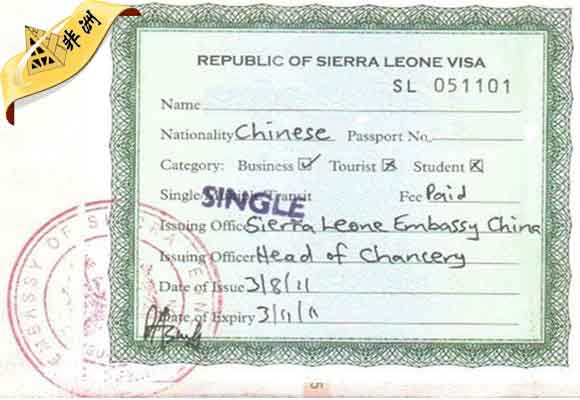 非洲
REPUBLIC OF SIERRA LEONE VISA
SL 051101
Name
Nationality Chinese Passport No.
Category: Business ☑ Tourist ☒ Student ☒
Single/ Transit Fee Paid
SINGLE
Issuing Office Sierra Leone Embassy China
Issuing Officer Head of Chancery
Date of Issue 3/8/11
Date of Expiry 3/11/11
EMBASSY OF SIERRA LEONE